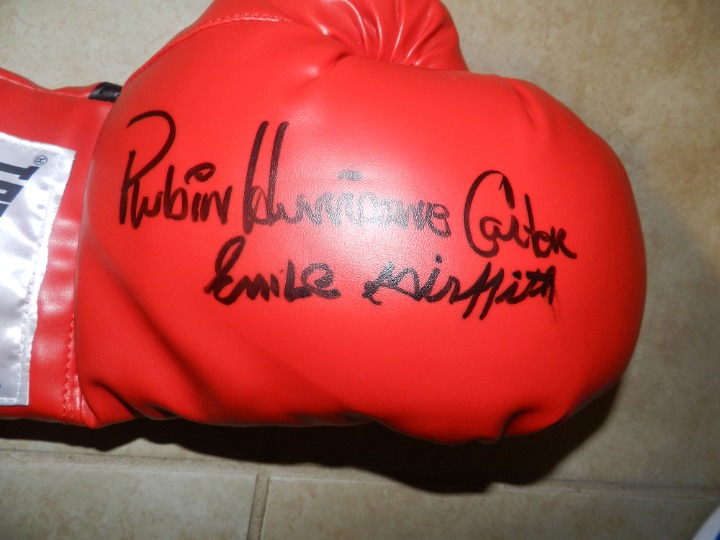 Rubin Hurricane Carter
Emile Griffith